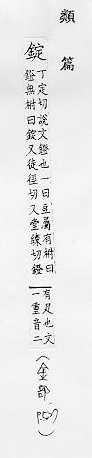 類篇
錠
丁定切說文鐙也一曰豆屬有柎曰
鐙無柎曰錠又徒徑切又堂練切鐙
有足也文
一重音二
(金部,